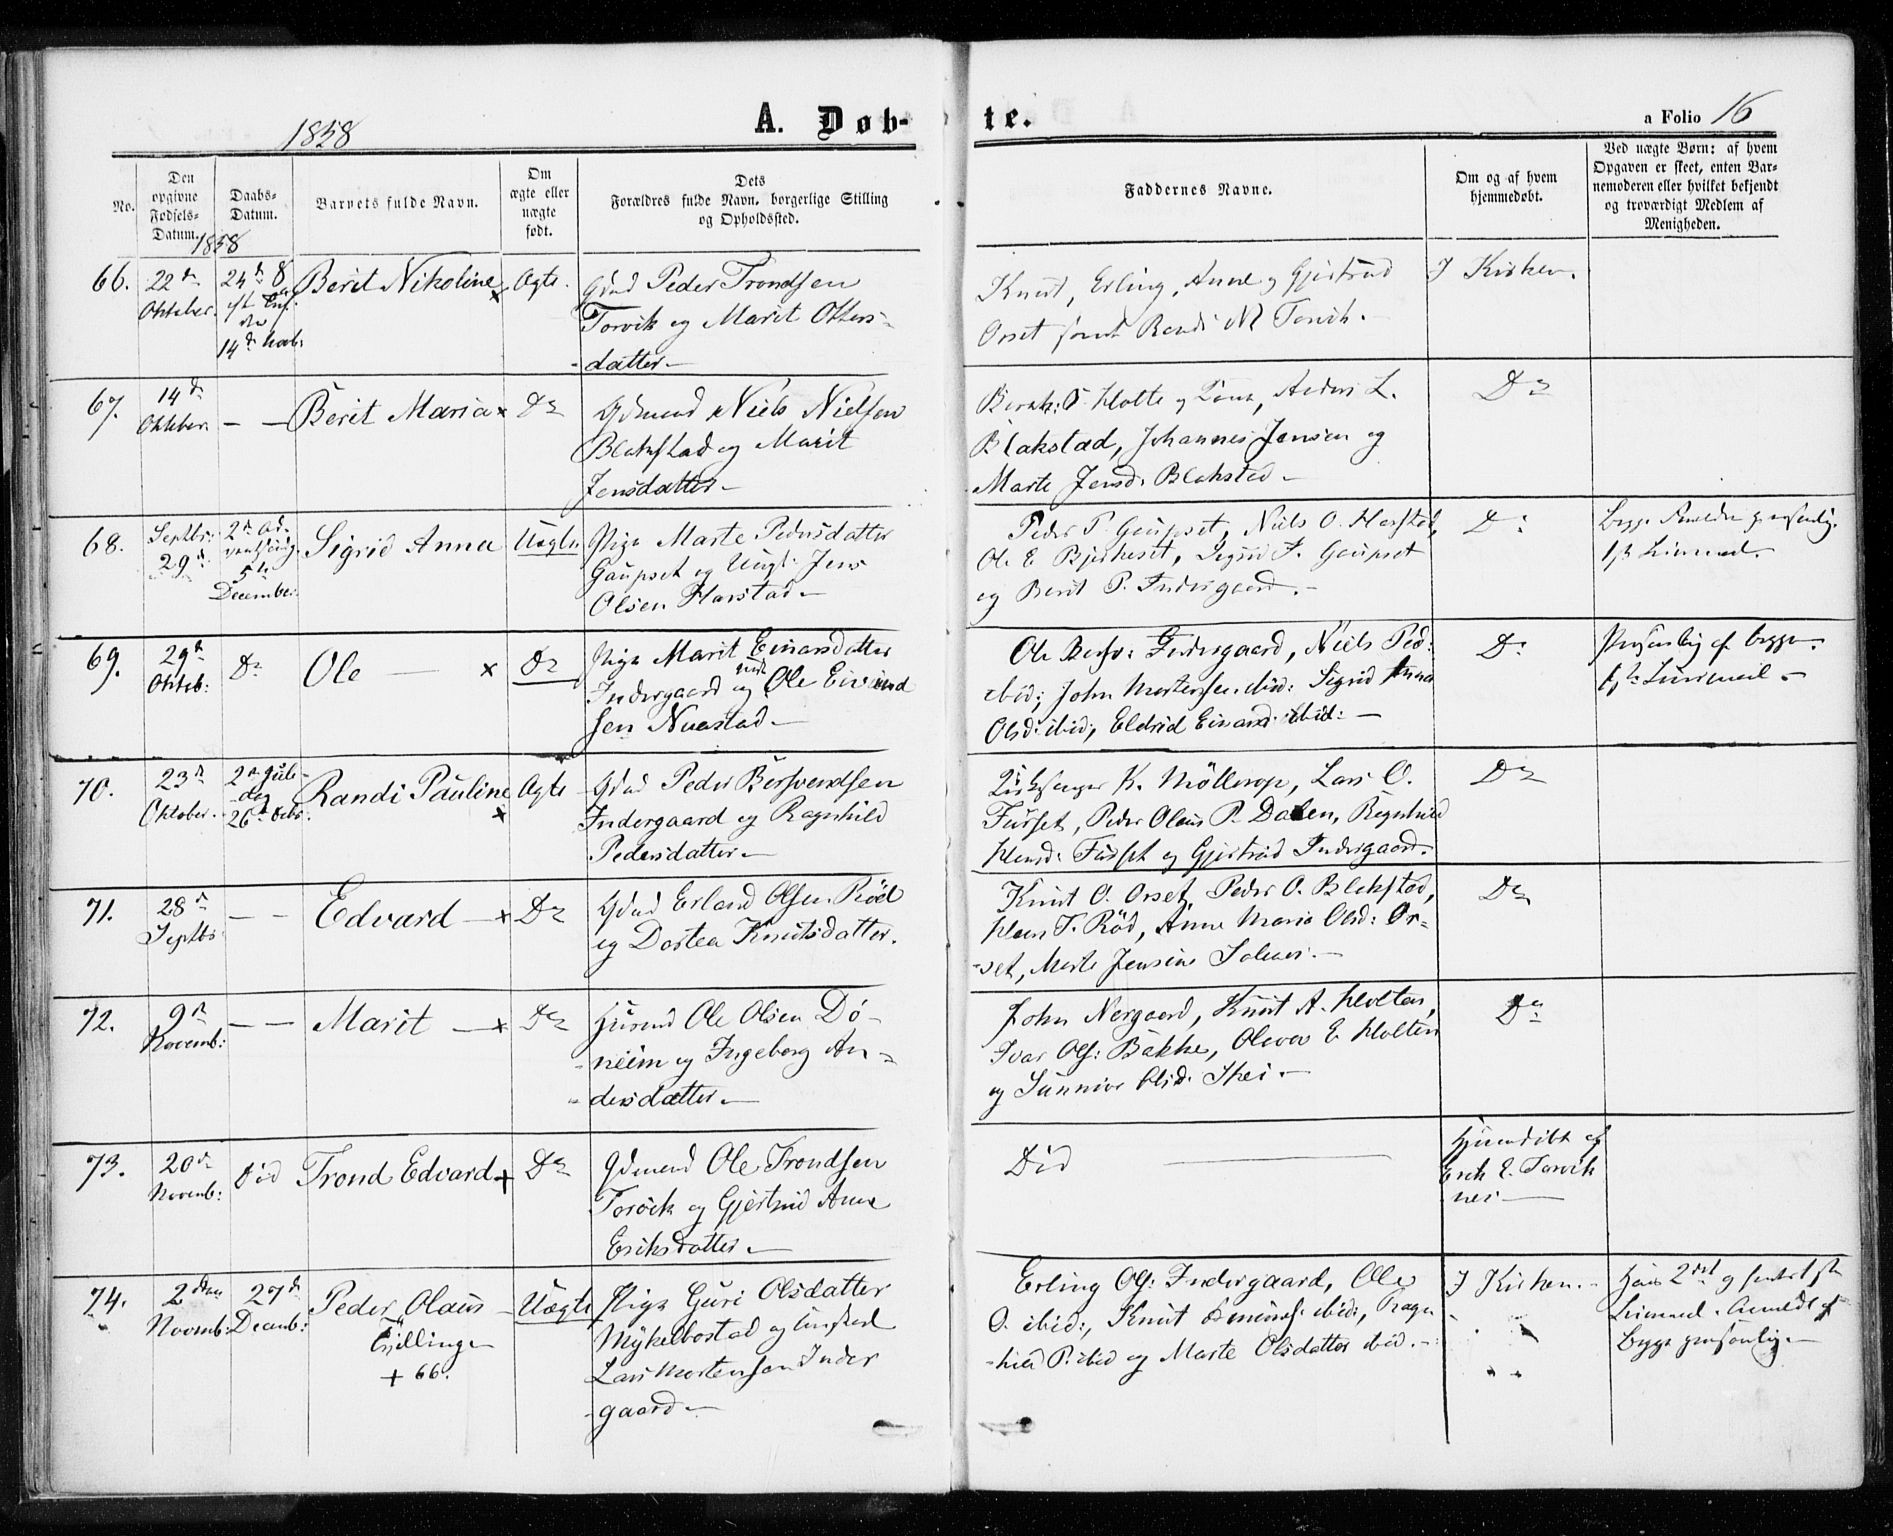 1858
A. Døb-
te.
a Folio 16
No.
Den
opgivne
Fødsels-
Datum.
Daabs-
Datum.
Barnets fulde Navn.
Om
ægte eller
uægte
født.
Dets
Forældres fulde Navn, borgerlige Stilling
og Opholdssted.
Faddernes Navne.
Om og af hvem
hjemmedøbt.
Ved uægte Børn: af hvem
Opgaven er skeet, enten Bar-
nemoderen eller hvilket bekjendt
og troværdigt Medlem af
Menigheden.
1858
66.
22de
Oktober.
24de S
14de
Berit Nikoline
×
Ægte.
Gbmd Peder Trondsen
Torvik og Marit Otters-
-datter-
Knut, Erling, Anne og Gjertrud
Orset samt Randi Torvik.
I Kirken.
67.
14de
Oktober.
— —
Berit Maria ×
Do
Gbmand Niels Nielsen
Blakstad og Marit
Jensdatter-
Holte og Anders L.
Blakstad, Johannes Jensen og
Marte Jensd: Blakstad-
Do
68.
Septbr:
29de
2den Ad-
ventssøndg.
5te
December.
Sigrid Anna
Uægte
Pige Marte Pedersdatter
Gaupset og Ungk: Jens
Olsen Harstad-
Peder P. Gaupset, Niels O. Harstad,
Ole E. Bjerkeset, Sigrid Gaupset
og Berit P. Indergaard.-
Do
Begge Forældre personlig.
1ste Leiermaal.
69.
29de
Oktob:
Do
Ole — ×
Do
Pige Marit Einarsdatter
Indergaard og Ole Eivind
sen Naastad-
Ole Indergaard, Niels Ped:
ibid; John Mortensen ibid: Sigrid Anna
Olsd: ibid, Eldrid Einarsd: ibid:-
Do
Personlig af begge.
1ste Leiermaal-
70.
23de
Oktober.
2den Jule-
dag
26de Decbr:
Randi Pauline
×
Ægte
Gbmd Peder Bersvendsen
Indergaard og Ragnhild
Pedersdatter-
Kirkesanger K. Möllerop, Lars O.
Furset, Peder Olaus P. Dalen, Ragnhild
Furset og Gjertrud Indergaard.
Do
71.
28de
Septbr:
— —
Edvard — ×
Do
Gbmd Erland Olsen Röd
og Dortea Knutsdatter.
Knut O. Orset, Peder O. Blakstad,
T. Röd, Anne Maria Olsd: Or-
-set, Marte Jensine
Do
72.
9de
Novemb:
— —
Marit — ×
Do
Husmd Ole Olsen Dö-
-neim og Ingeborg An-
-dersdatter-
John Nergaard, Knut A. Holten,
Ivar Ols: Bakke, E. Holten
og Sunniva Olsd:
Do
73.
20de
Novemb:
Död
Trond Edvard +
Do
Gbmand Ole Trondsen
Torvik og Gjertrud Anne
Eriksdatter-
Död
Hjemdöbt af
Erik E. Torvik
nes-
74.
2den
Novemb:
27de
Decemb:
Peder Olaus
Tvilling
+ 66.
Uægte
Pige Guri Olsdatter
Mykelbostad og
Lars Mortensen Inder
gaard-
Erling Ols: Indergaard, Ole
O. ibid:, Knut ibid:, Ragn
-hild P. ibid og Marte Olsdatter ibid.-
I Kirken.-
Hans 2det og
Leiermaal. Anmeldt af
Begge personlig-